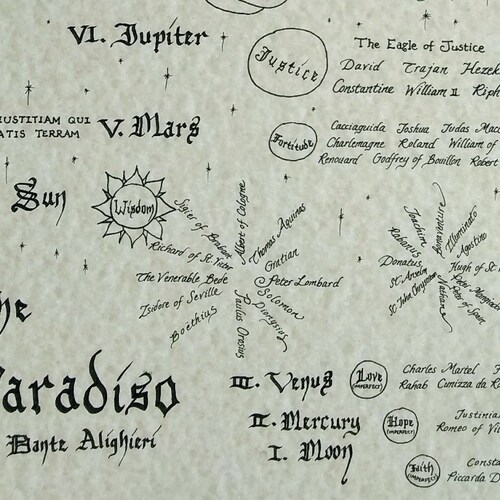 VI. Jupiter
Justice
The Eagle of Justice
David Trajan Hezek
Constantine William II Riph
IUSTITIAM QUI
ATIS TERRAM
V. Mars
Fortitude
Cacciaguida Joshua Judas Mac
Charlemagne Roland William of
Renouard Godfrey of Bouillon Robert
Sun
Wisdom
Albert of Cologne
Thomas Aquinas
Gratian
Peter Lombard
Solomon
Dionysius
Paulus Orosius
Boethius
Isidore of Seville
The Venerable Bede
Richard of St. Victor
Sigier of Brabant
Bonaventure
Illuminato
Agostino
Hugh of St.
Peter of Spain
Nathan
St. John Chrysostom
St. Anselm
Donatus
Rabanus
Joachim
he
Paradiso
Dante Alighieri
III. Venus
Love
(IMPERFECT)
Charles Martel F
Rahab Cunizza da R
II. Mercury
Hope
(IMPERFECT)
Justinia
Romeo of Vi
I. Moon
Faith
(IMPERFECT)
Consta
Piccarda D